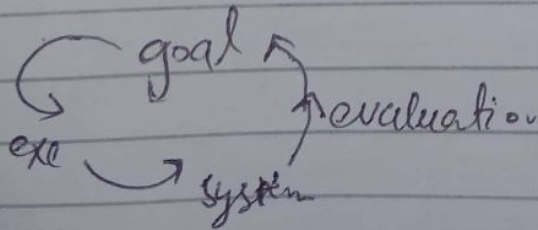 goal
evaluation
exe
system